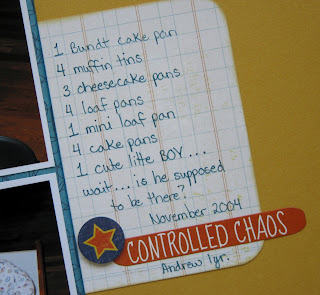 1 Bundt cake pan
4 muffin tins
3 cheesecake pans
4 loaf pans
1 mini loaf pan
4 cake pans
1 cute little BOY....
wait....is he supposed
to be there?
November 2004
CONTROLLED CHAOS
Andrew 1yr.